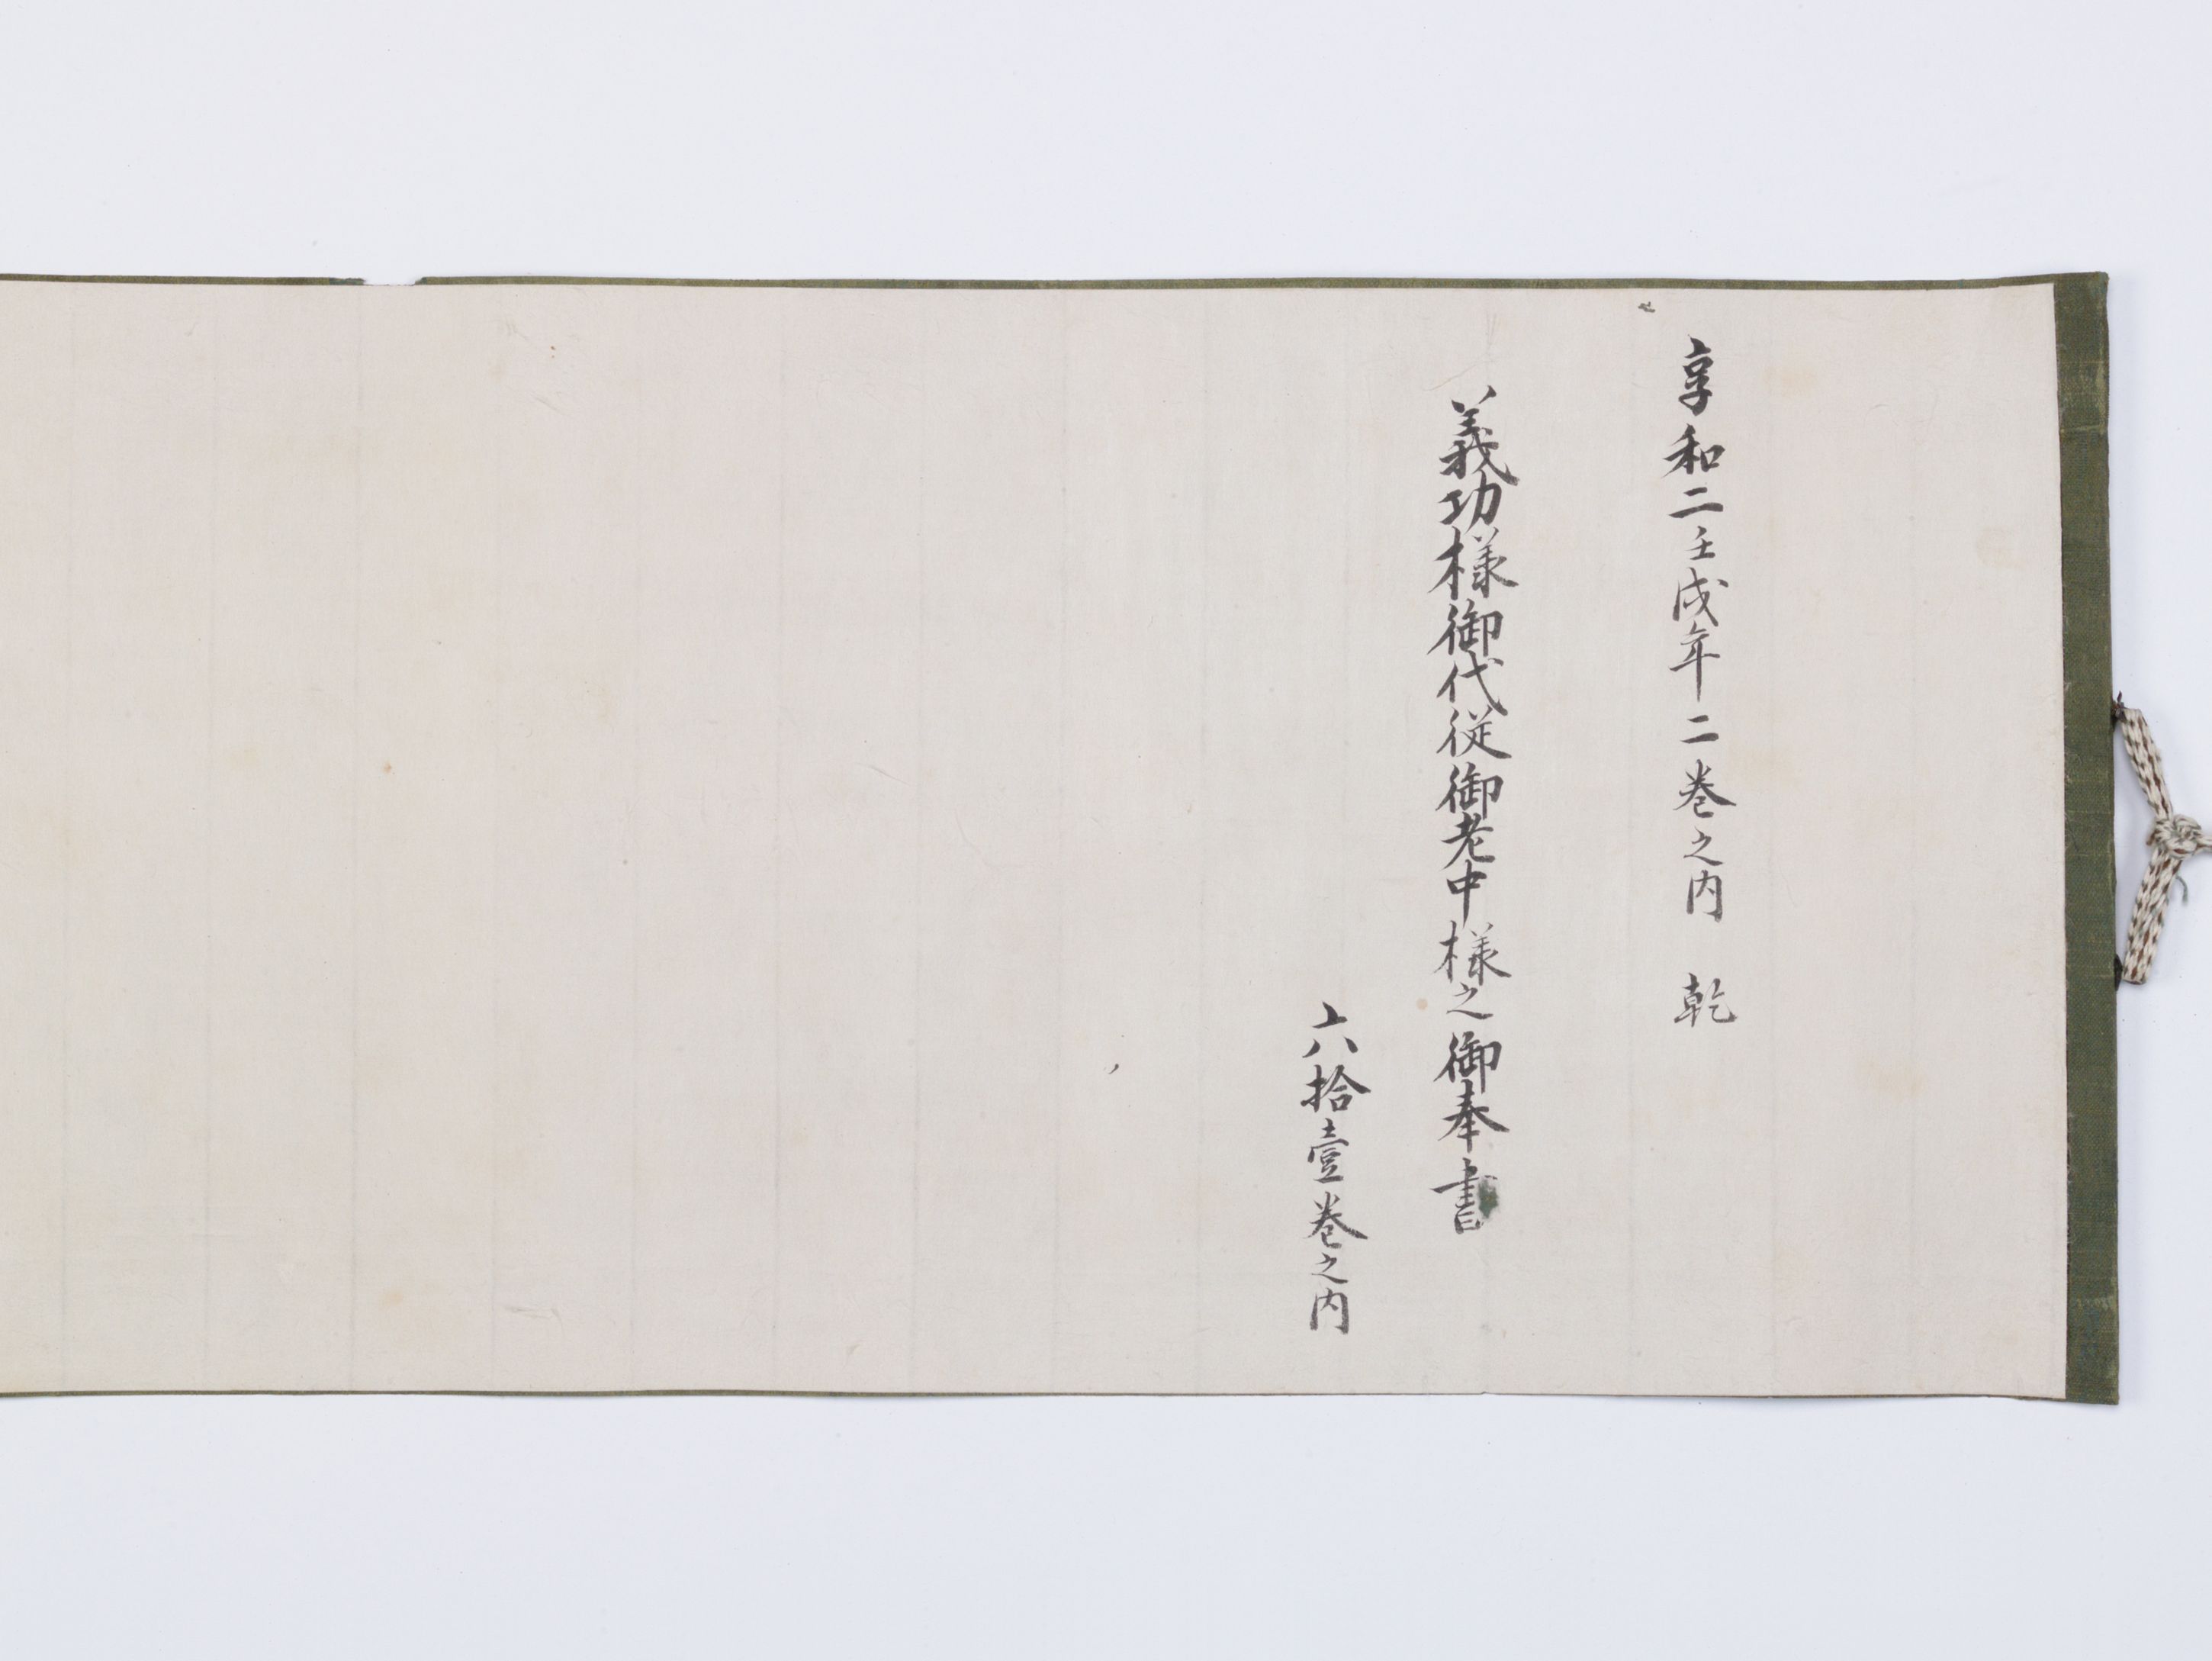 享和二壬戌年二巻之内　乾
義功様御代従御老中様之御奉書
六拾壹巻之内